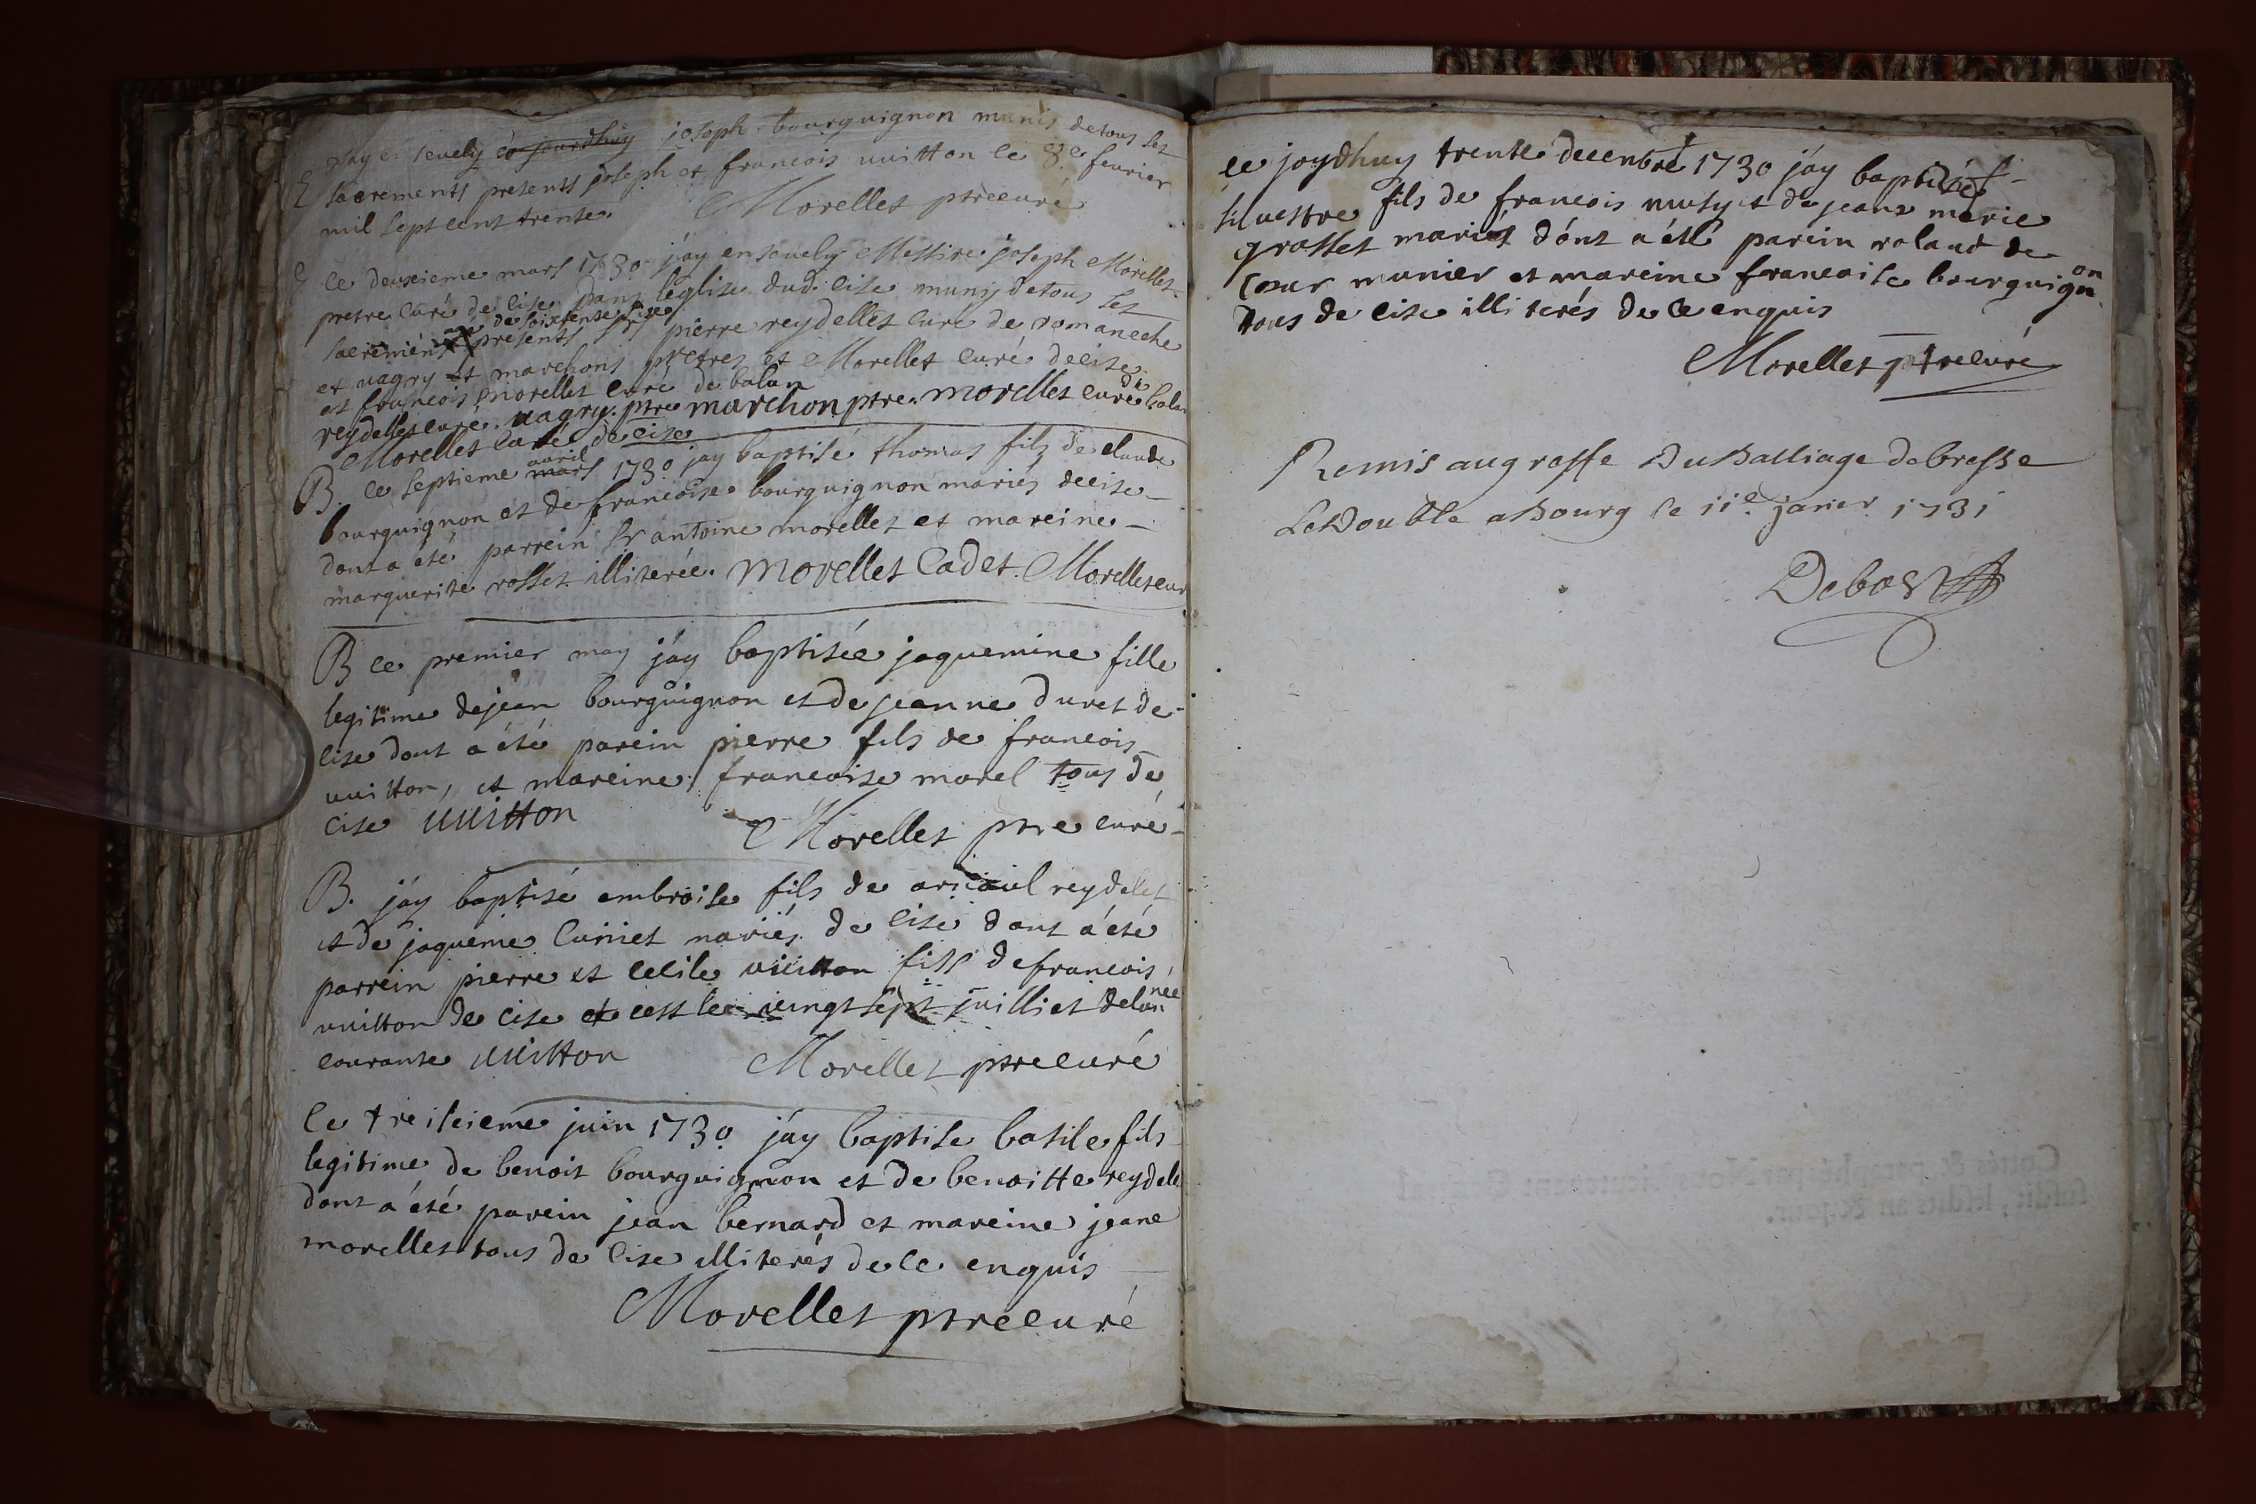 E jay ensevely ce jourdhuy joseph bourguignon munis de tous ses
sacrements presents joseph et francois vuitton ce 8e fevrier
mil sept cent trente. Morellet ptre curé
E ce deuxieme mars 1730 jay ensevely Messire joseph Morellet
pretre curé de cise dans l'eglise dud. cise muny de tous ses
sacréménts agé de soixente six
presents srs pierre reydellet curé de romaneche
et vagry et marchons prêtres et Morellet curé de cise
et francois morellet curé de balan
reydellet curé. vagry. ptre marchon ptre. morellet curé de balan
Morellet curé de cise
B. ce septieme mars avril 1730 jay baptisé thomas fils de claude
bourguignon et de francoise bourguignon mariés de cise
dont a été parrein Sr antoine morellet et mareine
marguerite rosset illiterée. Morellet Cadet. Morellet curé
B ce premier may jáy baptisée jaquemine fille
legitime de jean bourguignon et de jeanne duret de
cise dont a été parein pierre fils de francois
vuitton, et mareine francoise morel tous de
cise vuitton Morellet ptre curé
B. jáy baptisé embroise fils de reydelet
et de jaqueme cuniet mariés de cise dont á été
parrein pierre et cecile vuitton fils de francois
vuitton de cise et cest le veingt sept juilliet de lannée
courante vuitton Morellet ptre curé
Ce treisieme juin 1730 jáy baptise basile fils
legitime de benoit bourguignon et de benoitte reydelet
dont á été parein jean bernard et mareine jeane
morellet tous de cise illiterés de ce enquis
Morellet ptre curé
ce joydhuy trente decenbre 1730 jáy baptisé
silvestre fils de francois musy et de jeane marie
grosset mariés dónt a été parein roland de
cour munier et mareine francoise bourguignon
tous de cise illiterés de ce enquis
Morellet ptre curé
Remis au grosse du Balliage de bresse
Le Double a Bourg le 11e janier 1731
Debost